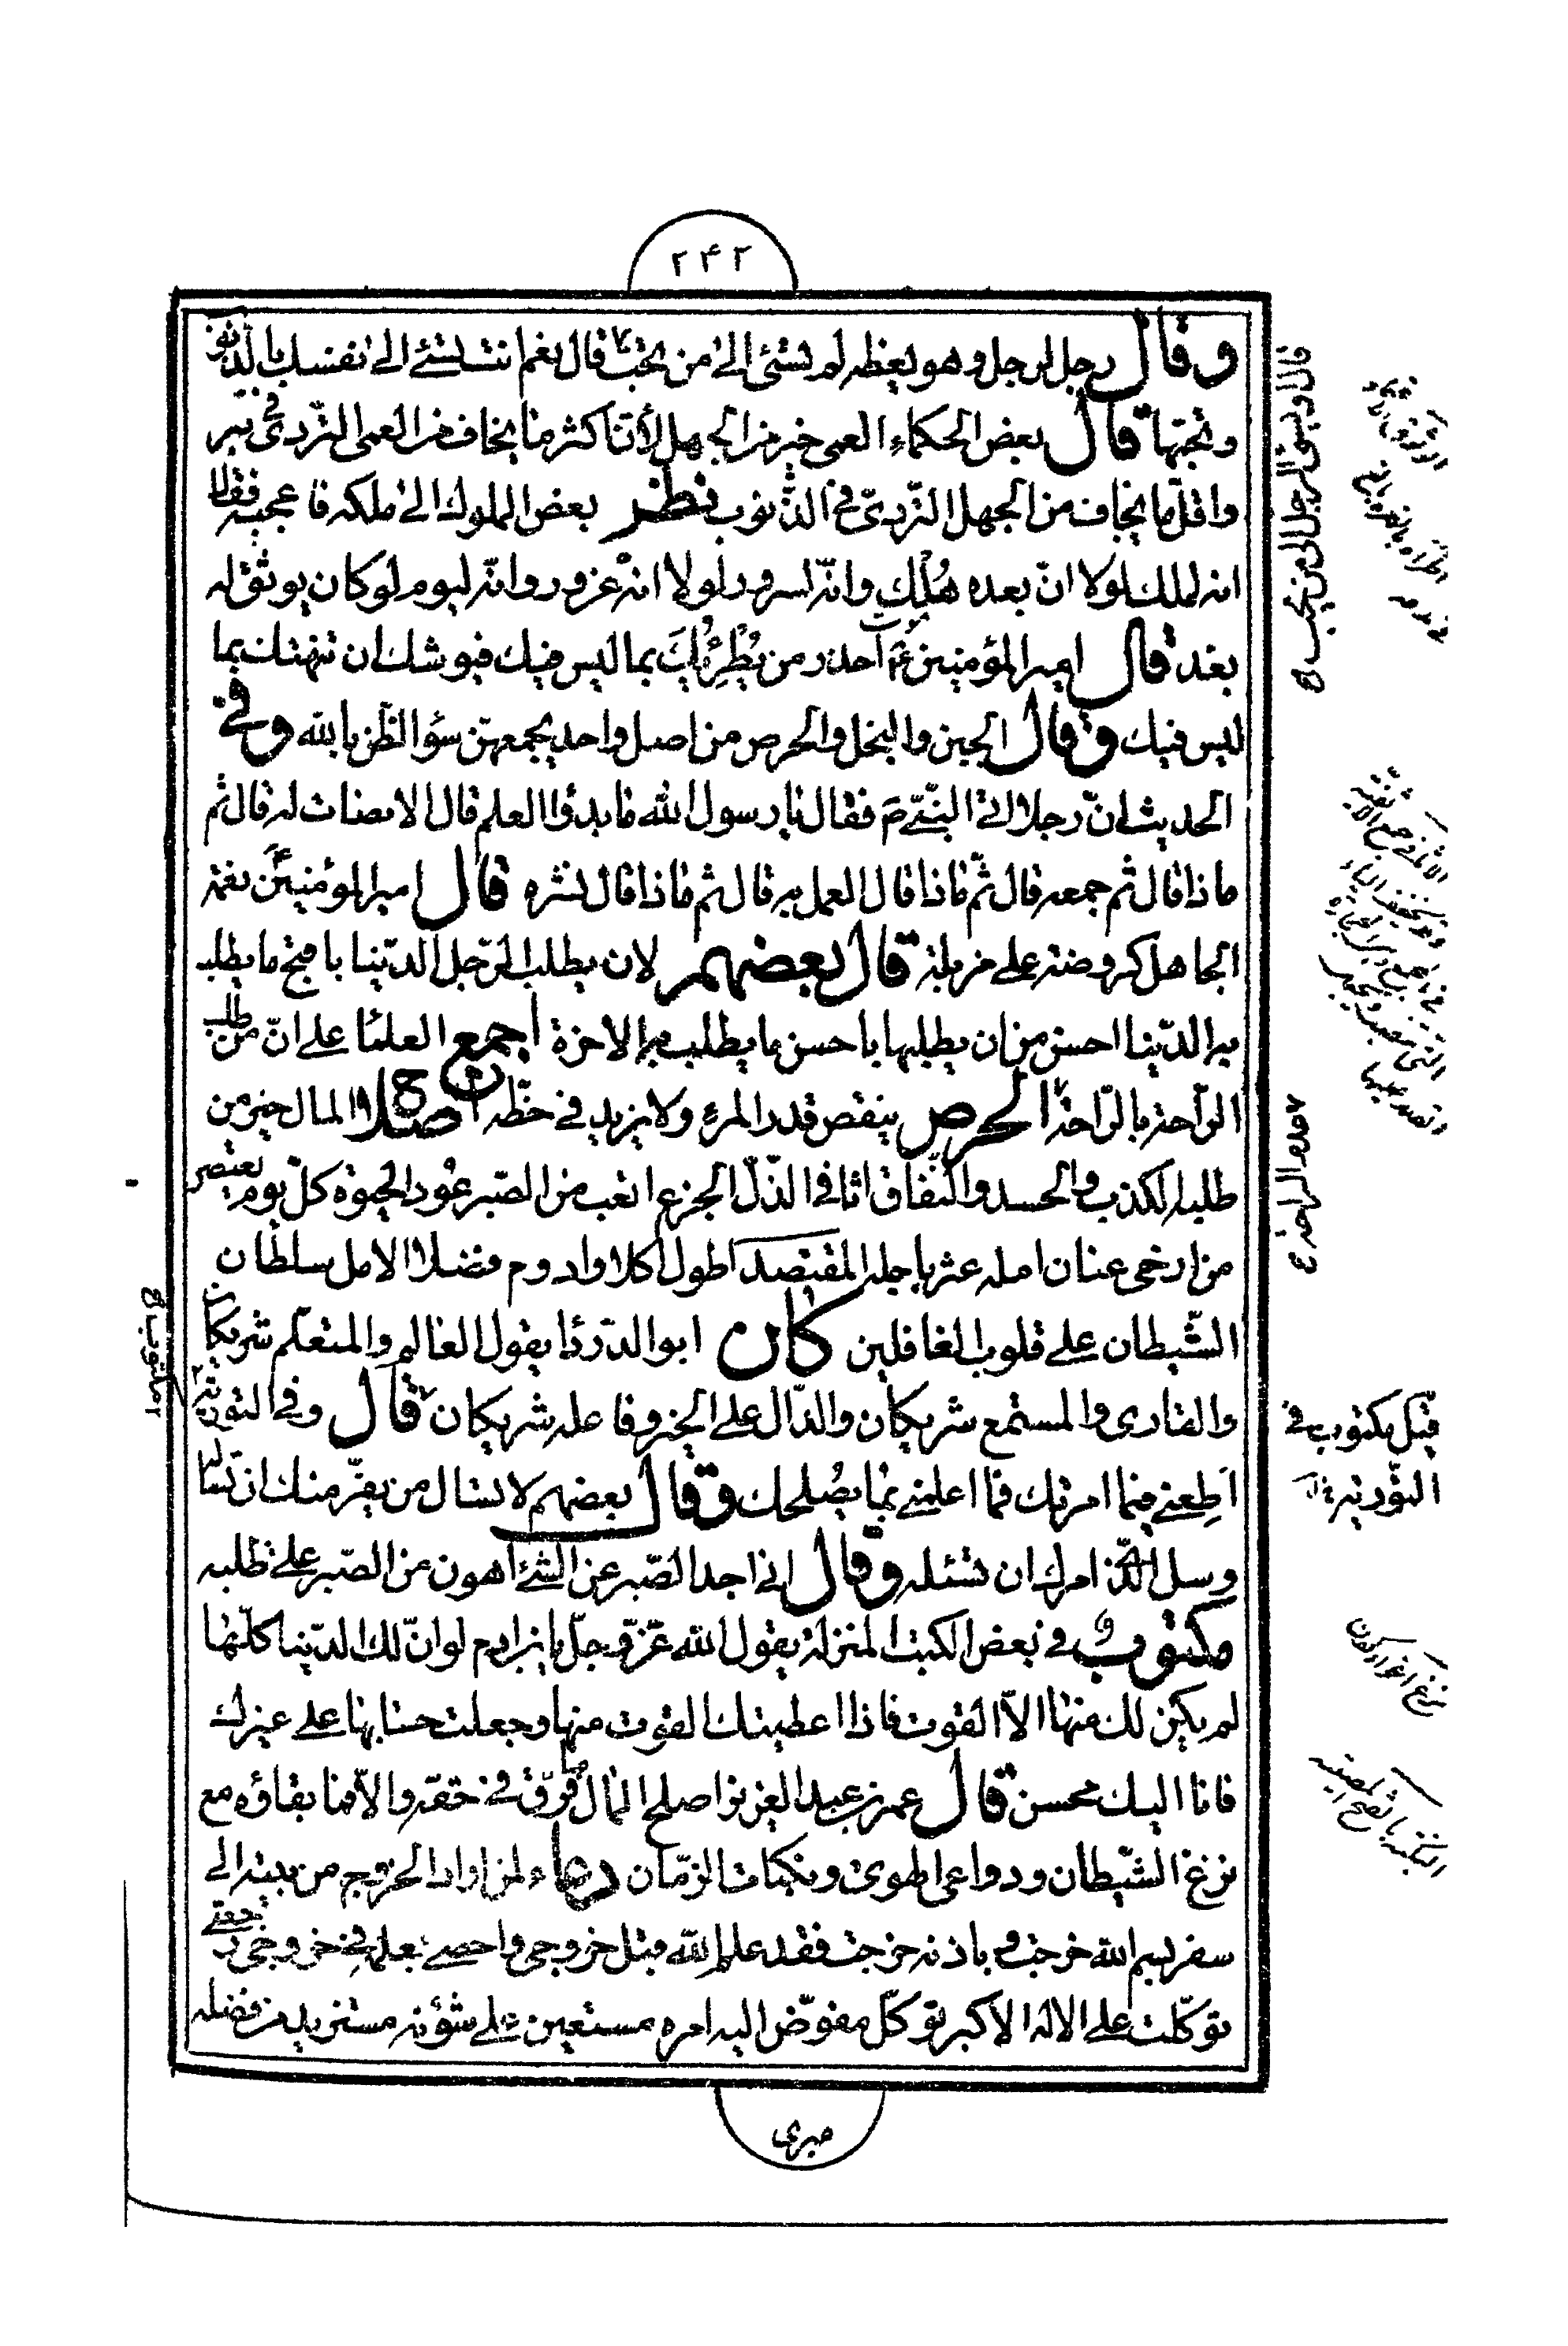 ۲۴۲
وقال رجل لرجل وهو يعظه لم تسئ الى من تحب قال نعم انت تسئ الى نفسك بالذنوب
وتحبها قال بعض الحكماء العمى خير من الجهل لأن اكثر ما يخاف من العمى التردى فى بئر
واقل ما يخاف من الجهل التردىّ فى الذنوب نظر بعض الملوك الى ملكه فاعجبه فقال
انه لملك لولا انّ بعده هُلْك وانّه لسرور لولا انه غرور وانّه ليوم لو كان يوثق له
بغد قال امير المؤمنين ع احذر من يُطْرِيْك بما ليس فيك فيوشك ان تنهتك بما
ليس فيك وقال الجبن والبخل والحرص من اصل واحد يجمعهنّ سؤ الظن بالله وفى
الحديث ان رجلا اتى النّبىّ ص فقال يا رسول الله ما بدؤ العلم قال الانصات له قال ثم
ماذا قال ثم جمعه قال ثمّ ماذا قال العمل به قال ثم ماذا قال نشره قال امير المؤمنين ع نعمة
الجاهل كروضة على مزبلة قال بعضهم لان يطلب الرّجل الدّنيا باقبح ما يطلب
به الدّنيا احسن من ان يطلبها باحسن ما يطلب به الاخرة اجمع العلما على انّ من طلب
الرّاحة بالرّاحة الحرص ينقص قدر المرء ولا يزيد فى حظّه اصلاح المال خير من
طلبه الكذب والحسد والنّفاق اثافى الذّلّ الجزع اتعب من الصّبر عُود الحيوة كلّ يوم يعتصر
من ارخى عنان امله عثر باجله المقتصد اطول اكلا وادوم فضلا الامل سلطان
الشّيطان على قلوب الغافلين كان ابو الدّردا يقول العالم والمتعلّم شريكان
والقارى والمستمع شريكان والدّال على الخير وفاعله شريكان قال وفى التورية
اَطِعنى فيما امرتك فما اعلمنى بما يصُلحك وقال بعضهم لا تسال من يفرّ منك ان تساله
وسل الّذى امرك ان تسئله وقال انى اجد الصّبر عن الشئ اهون من الصّبر على طلبه
مكتوب فى بعض الكتب المنزلة يقول الله عزّ وجلّ يا بن ادم لو انّ لك الدّنيا كلّها
لم يكن لك منها الاّ القوت فاذا اعطيتك القوت منها وجعلت حسابها على غيرك
فانا اليك محسن قال عمر بن عبد العزيز اصلح المال فرّق فى حقّه والاّ فما بقاؤه مع
نزغ الشّيطان ودواعى الهوى ونكبات الزّمان دعاء لمن اراد الخروج من بيته الى
سفر بسم الله خرجت وباذنه خرجت فقد علم الله قبل خروجى واحصى بعلمه فى خروجى رجعتى
توكّلت على الاله الاكبر توكّل مفوّض اليه امره مستعين على شؤنه مستزيد من فضله
مبرى
قال او يسئ الرجل الى من يحب
قيل مكتوب فى
التّورية